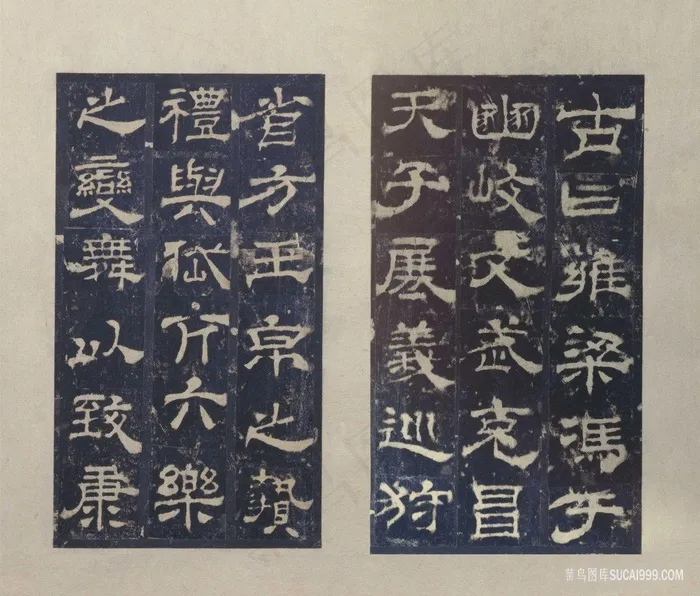 古曰雍梁馮于
豳岐文武克昌
天子展義巡狩
省方玉帛之贄
禮與岱亢六樂
之變舞以致康
菁鸟图库SUCAI999.COM